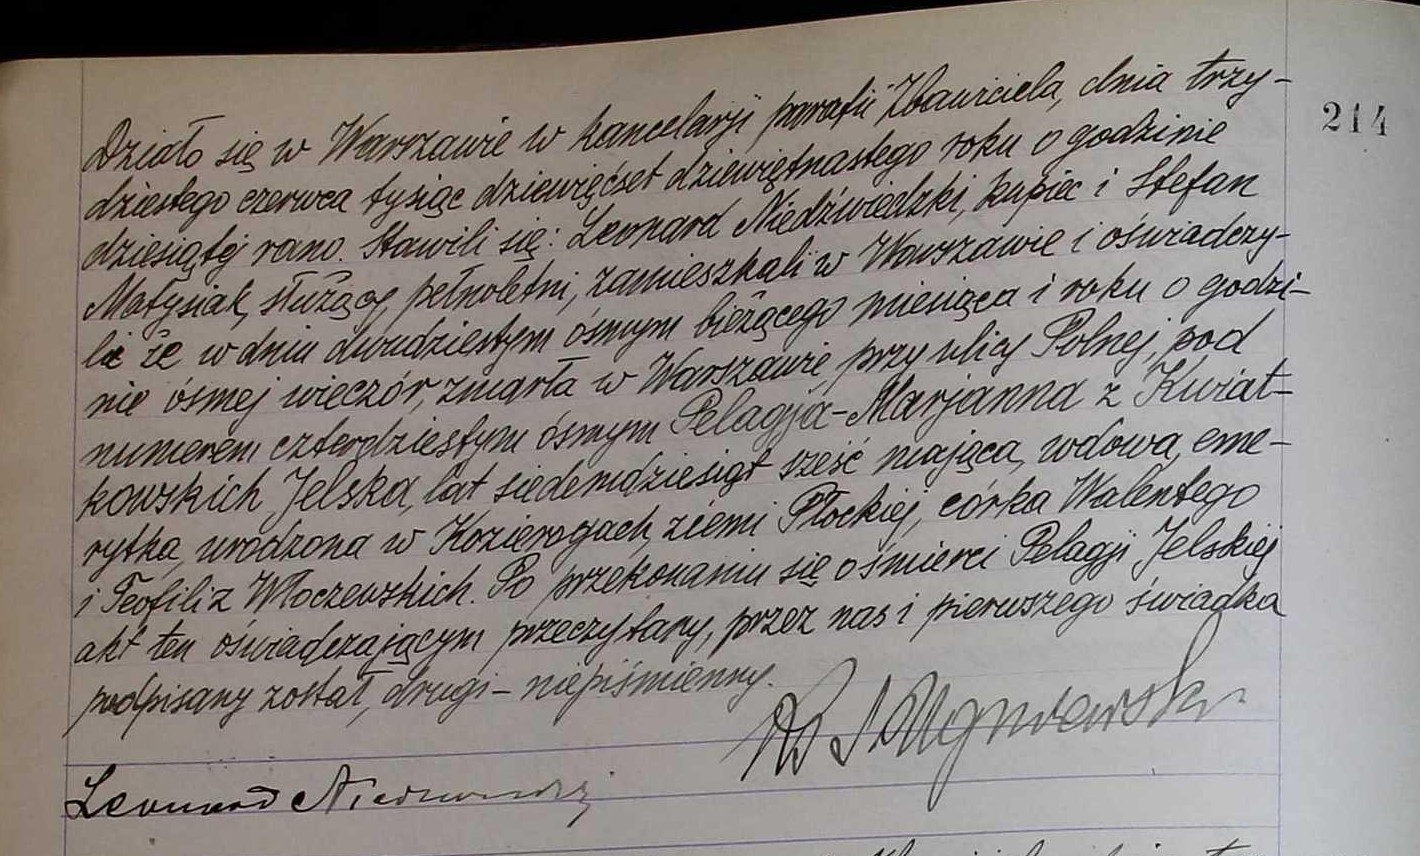 Działo się w Warszawie w kancelarji parafii Zbawiciela, dnia trzy-
214
dziestego czerwca tysiąc dziewięćset dziewiętnastego roku o godzinie
dziesiątej rano. Stawili się: Leonard Niedźwiedzki, kupiec i Stefan
Matysiak, służący, pełnoletni, zamieszkali w Warszawie i oświadczy-
li że w dniu dwudziestym ósmym bieżącego miesiąca i roku o godzi-
nie ósmej wieczór, zmarła w Warszawie przy ulicy Polnej, pod
numerem czterdziestym ósmym Pelagja-Marjanna z Kwiat-
kowskich Jelska, lat siedemdziesiąt sześć mająca, wdowa, eme-
rytka, urodzona w Kozierogach, ziemi Płockiej, córka Walentego
i Teofili z Włoczewskich. Po przekonaniu się o śmierci Pelagji Jelskiej
akt ten oświadczającym przeczytany, przez nas i pierwszego świadka
podpisany został, drugi – niepiśmienny.
Leonard